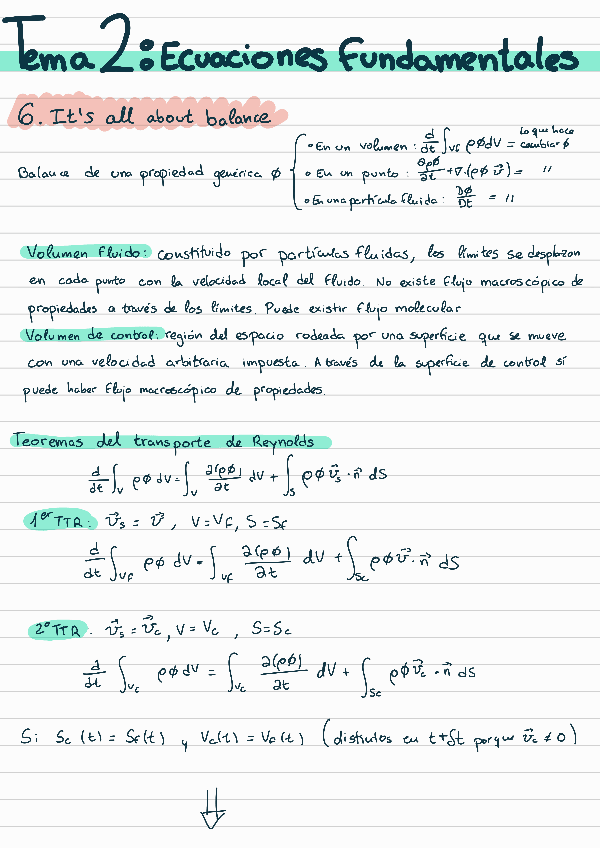 Tema 2: Ecuaciones fundamentales
6. It's all about balance
Balance de una propiedad genérica φ
• En un volumen : d/dt ∫_VF ρφdV = Lo que hace cambiar φ
• En un punto : ∂ρφ/∂t + ∇·(ρφ v⃗) = "
• En una partícula fluida : Dφ/Dt = "
Volumen fluido: constituido por partículas fluidas, los límites se desplazan
en cada punto con la velocidad local del fluido. No existe flujo macroscópico de
propiedades a través de los límites. Puede existir flujo molecular
Volumen de control: región del espacio rodeada por una superficie que se mueve
con una velocidad arbitraria impuesta. A través de la superficie de control sí
puede haber flujo macroscópico de propiedades.
Teoremas del transporte de Reynolds
d/dt ∫_V ρφ dV = ∫_V ∂(ρφ)/∂t dV + ∫_S ρφ v⃗_s · n⃗ dS
1er TTR: v⃗_s = v⃗ , V=V_F, S=S_F
d/dt ∫_VF ρφ dV = ∫_VF ∂(ρφ)/∂t dV + ∫_Sc ρφ v⃗ · n⃗ dS
2º TTR. v⃗_s = v⃗_c , V=V_c , S=S_c
d/dt ∫_Vc ρφ dV = ∫_Vc ∂(ρφ)/∂t dV + ∫_Sc ρφ v⃗_c · n⃗ dS
Si S_c (t) = S_f(t) y V_c(t) = V_F(t) (distintos en t+δt porque v⃗_c ≠ 0)
⇓